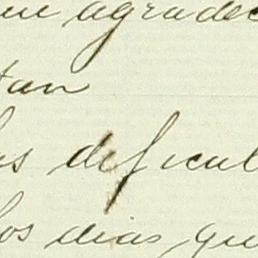 agradec
tan
las dificul
los dias que